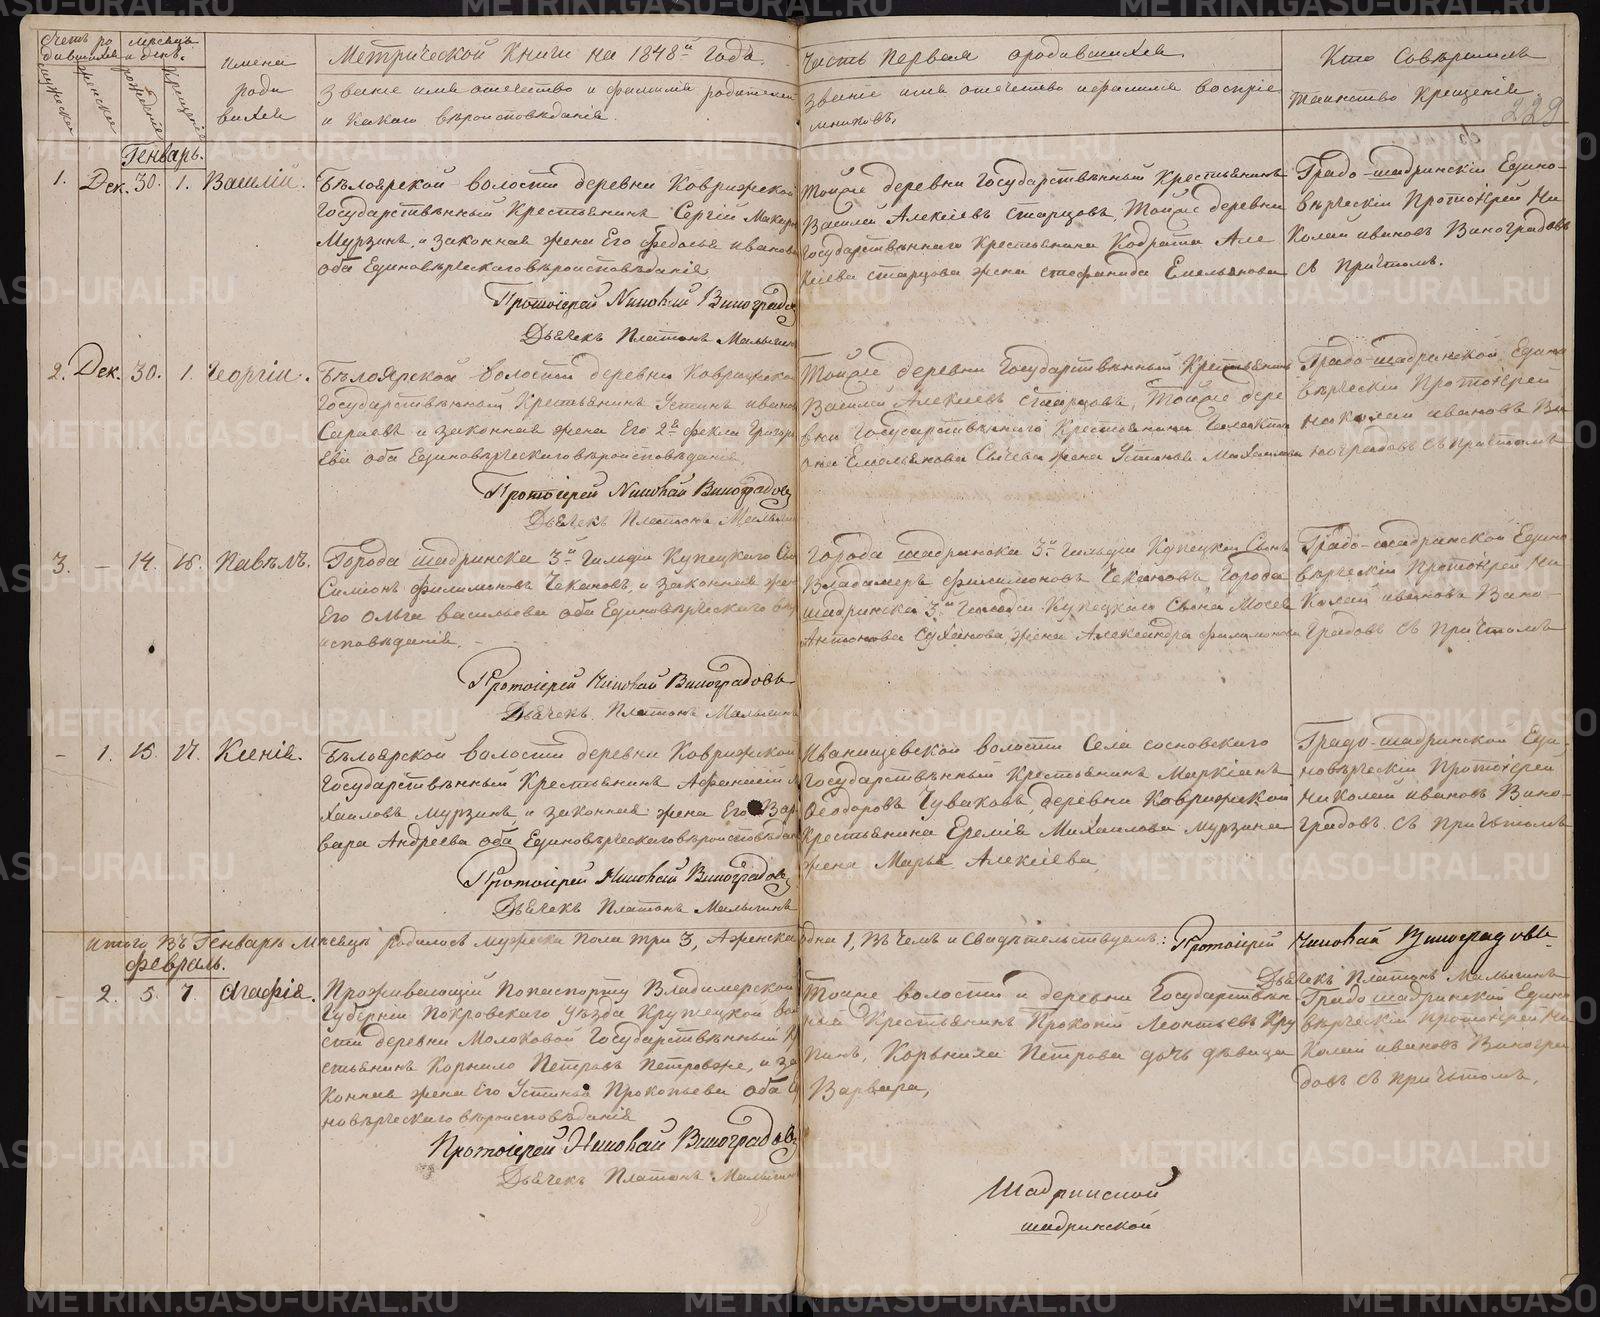 Счетъ ро
дившихся
мѣсяцъ
и день.
мужеска
женска
рожденіе
крещеніе
имена
роди
вшихся
Метрической Книги на 1848й годъ.
Званіе имя отечество и фамилія родителей
и какаго вѣроисповѣданія.
часть первая ородившихся
Званіе имя отечество ифамилія воспріе
мниковъ,
Кто совершилъ
таинство крещенія.
229
Генварь.
1. Дек. 30. 1. Василій.
Бѣлоярской волости деревни Коврижской
Государственный Крестьянинъ Сергій Макаро
Мурзинъ, и законная жена Его Федосья иванова
оба Единовѣрческаго вѣроисповѣданія
Протоіерей Николай Виноградов
Дьячекъ Платонъ Малыгинъ
Тойже деревни Государственный Крестьянинъ
Василей Алексіевъ Старцовъ, Тойже деревни
Государственнаго Крестьянина Кодрата Але
ксіева старцова жена стефанида Емельянова
Градо-шадринскій Едино-
вѣрческій Протоіерей Ни
колай ивановъ Виноградовъ
съ причтомъ.
2. Дек. 30. 1. Георгій.
Бѣлоярской волости деревни Коврижской
Государственный Крестьянинъ Устинъ иванов
Сараевъ и законная жена Его 2я фекла Григорь
Ева оба Единовѣрческаго вѣроисповѣданія
Протоіерей Николай Виноградовъ
Дьячекъ Платонъ Малыгин
Тойже деревни Государственный Крестьянинъ
Василей Алексіевъ Старцовъ, Тойже дере
вни Государственнаго Крестьянина
Емельянова Сычева жена Устинья Михаилова
Градо-шадринской Едино
вѣрческій Протоіерей
николай ивановъ Ви
ноградовъ съ причтомъ
3. – 14. 15. Павелъ.
Города шадринска 3й Гильдіи Купецкаго Сы
Симіонъ филимоновъ Чекановъ, и законная жен
Его Ольга васильева оба Единовѣрческаго вѣро
исповѣданія.
Протоіерей Николай Виноградовъ
Дьячекъ Платонъ Малыгинъ
города шадринска 3й Гильдіи Купецкой Сынъ
Владимеръ филимоновъ Чекановъ, Города
шадринска 3й Гильдіи Купецкаго Сына Мосея
Антонова Суханова, жена Александра филимонова
Градо-шадринской Едино
вѣрческій Протоіерей Ни
колай ивановъ Вино-
градовъ съ причтомъ
– 1. 15. 17. Ксенія.
Бѣлоярской волости деревни Коврижской
Государственный Крестьянинъ Афанасій Ми
хаиловъ Мурзинъ, и законная жена Его Вар
вара Андреева оба Единовѣрческаго вѣроисповѣдан
Протоіерей Николай Виноградовъ
Дьячекъ Платонъ Малыгинъ
Иванищевской волости Села сосновскаго
Государственный Крестьянинъ Маркіанъ
Феодоровъ Чуваковъ, деревни Коврижской
Крестьянина Еремія Михаилова Мурзина
жена Марья Алексіева,
Градо-шадринской Еди-
новѣрческій Протоіерей
николай ивановъ Вино-
градовъ съ причьтомъ
итого Въ Генварѣ Мѣсяцѣ родилось мужеска пола три 3, Аженска одна 1, Въ чемъ и свидѣтельствуемъ: Протоіерей Николай Виноградовъ
Дьячекъ Платонъ Малыгинъ
Февраль.
– 2. 5. 7. Агафія.
Проживающій Попаспорту Владимерской
Губерніи Покровскаго уѣзда Крутецкой во
сти деревни Молоковой Государственный Кр
стьянинъ Корнило Петровъ Петровже, и за
конная жена Его Устинья Прокопьева оба Еди
новѣрческаго вѣроисповѣданія
Протоіерей Николай Виноградовъ
Дьячекъ Платонъ Малыгинъ
Тойже волости и деревни Государствен
ный Крестьянинъ Прокопій Леонтьевъ Кру
пинъ, Корнила Петрова дочь дѣвица
Варвара,
Градо шадринской Едино
вѣрческій протоіерей Ни
колай ивановъ Виногра
довъ съ причьтомъ,
Шадринской
шадринской